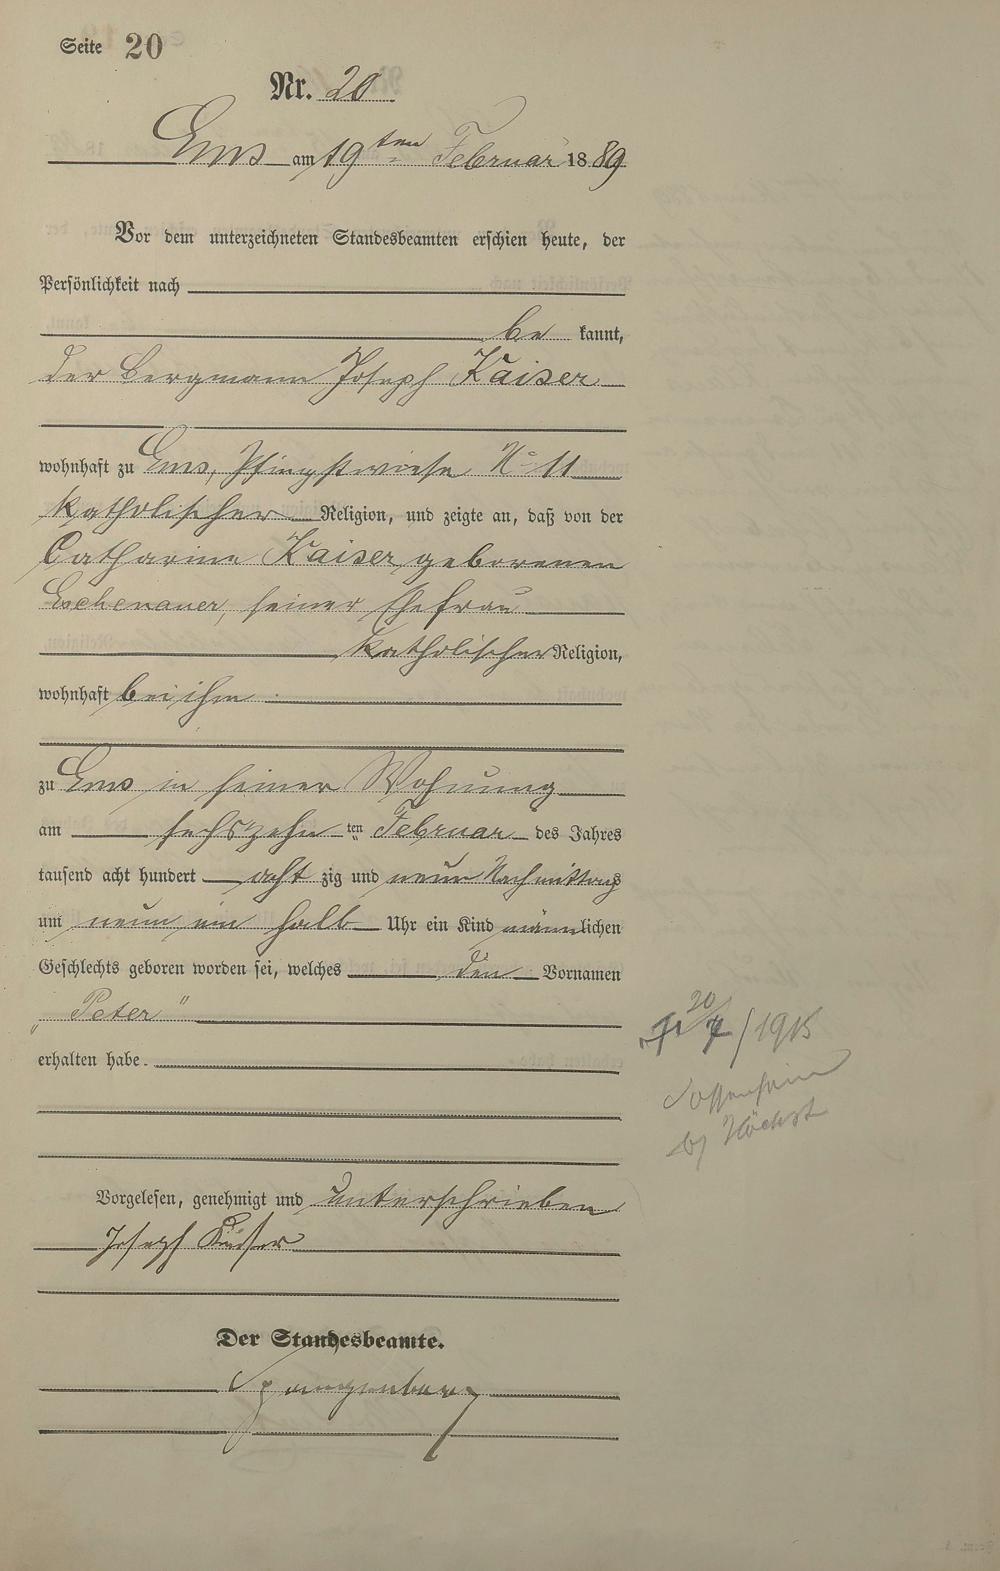 Seite 20
Nr. 20
Ems am 19ten Februar 1889
Vor dem unterzeichneten Standesbeamten erschien heute, der
Persönlichkeit nach
be kannt,
der Bergmann Joseph Kaiser
wohnhaft zu Ems, Pfingstwiese No 11
katholischer Religion, und zeigte an, daß von der
Catharina Kaiser, geborenen
Eschenauer, seiner Ehefrau
katholischer Religion,
wohnhaft bei ihm
zu Ems in seiner Wohnung
am sechszehn ten Februar des Jahres
tausend acht hundert acht zig und neun Nachmittags
um neun ein halb Uhr ein Kind männlichen
Geschlechts geboren worden sei, welches den Vornamen
„Peter"
erhalten habe.
20/7/1915
Sossenheim
b/ Höchst
Vorgelesen, genehmigt und unterschrieben
Joseph Kaiser
Der Standesbeamte.
Spangenberg